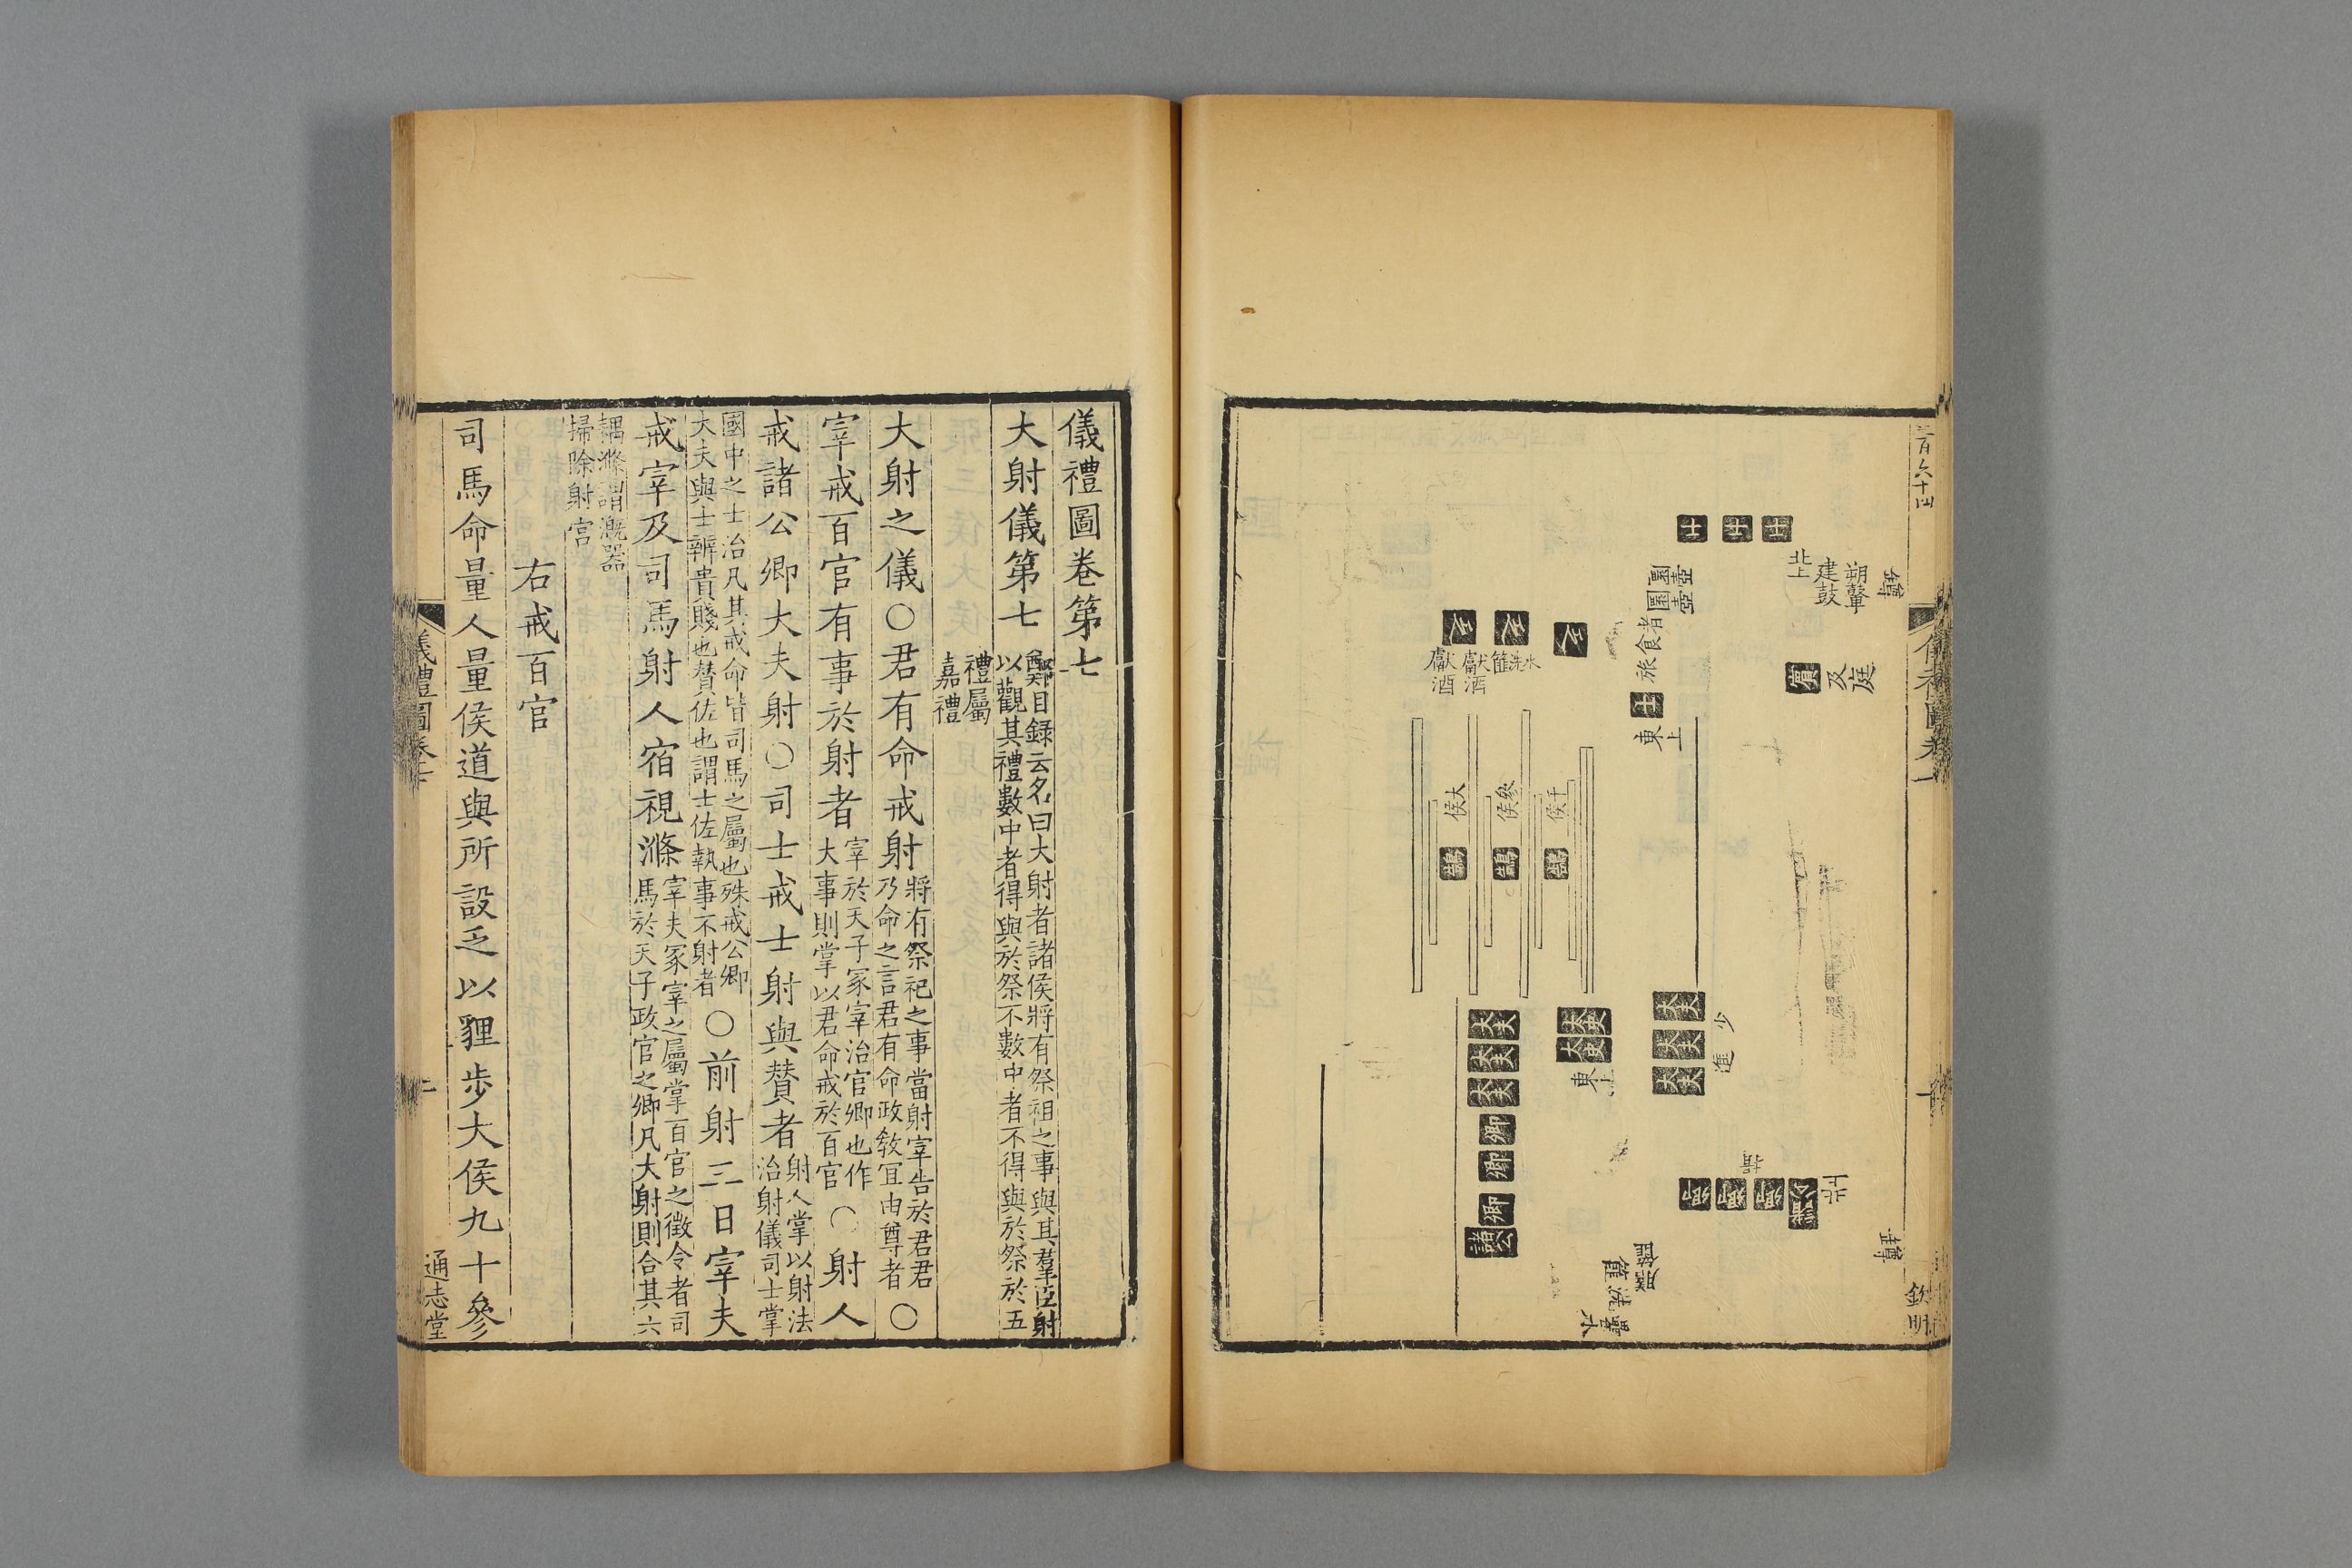 三百六十四
士
士
士
北上
建鼓
朔鼙
鑮
賓
及庭
圜壺
圜壺
旅食者
士
東上
獻酒
獻酒
篚
洗
水
大侯
參侯
干侯
鵠
鵠
鵠
大夫
大夫
大夫
卿
卿
卿
諸公
大史
大史
東上
大夫
大夫
大夫
少進
卿
卿
卿
諸公
北上
揖
鑮
膳篚
篚
洗
罍水
欽明
儀禮圖卷第七
大射儀第七
鄭目録云名曰大射者諸侯將有祭祖之事與其羣臣射
以觀其禮數中者得與於祭不數中者不得與於祭於五
禮屬
嘉禮
大射之儀○君有命戒射
將有祭祀之事當射宰告於君君
乃命之言君有命政敎宜由尊者
○
宰戒百官有事於射者
宰於天子冢宰治官卿也作
大事則掌以君命戒於百官
○射人
戒諸公卿大夫射○司士戒士射與贊者
射人掌以射法
治射儀司士掌
國中之士治凡其戒命皆司馬之屬也殊戒公卿
大夫與士辨貴賤也贊佐也謂士佐執事不射者
○前射三日宰夫
戒宰及司馬射人宿視滌
宰夫冢宰之屬掌百官之徵令者司
馬於天子政官之卿凡大射則合其六
耦滌謂溉器
掃除射宮
右戒百官
司馬命量人量侯道與所設乏以貍步大侯九十參
儀禮圖卷七
通志堂